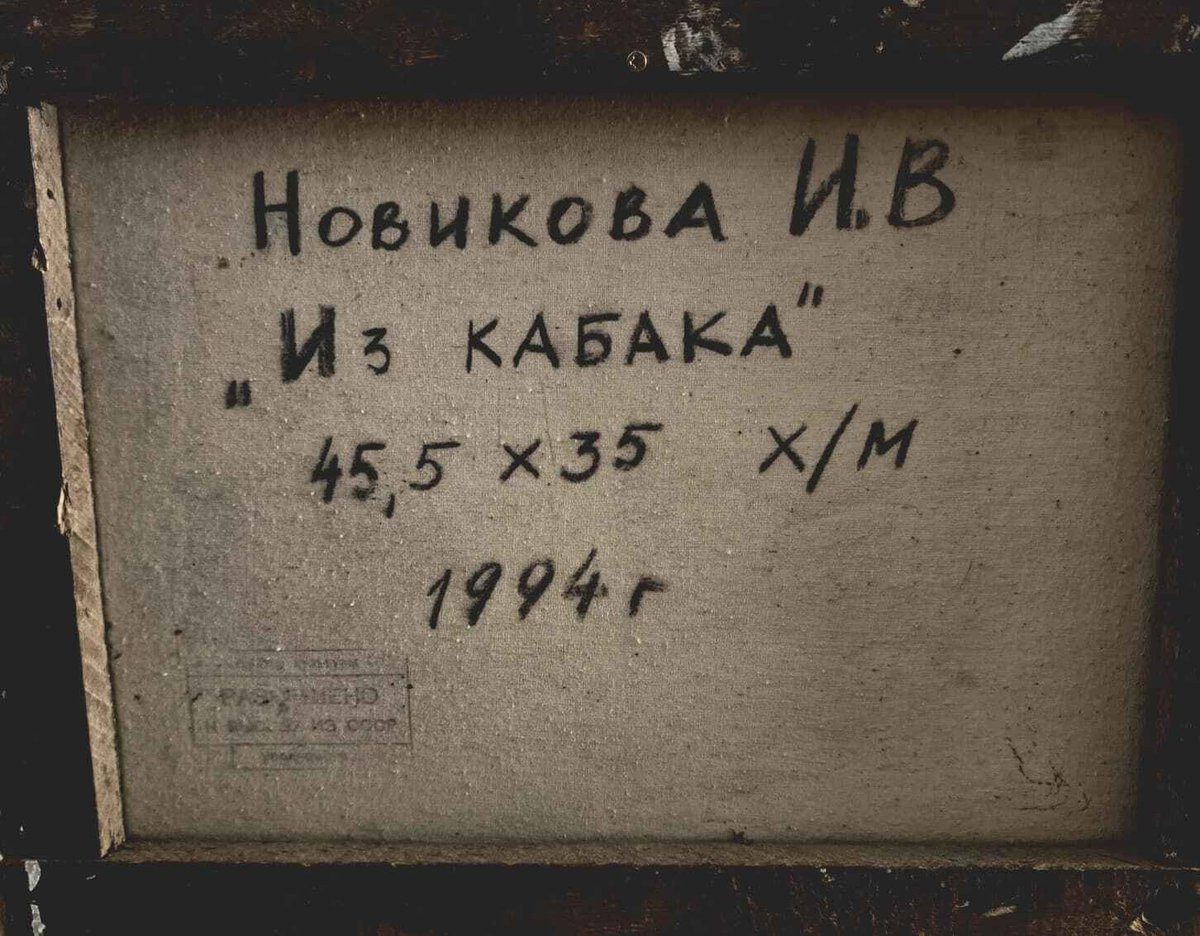 Новикова И.В
„Из кабака"
45,5 x 35 х/м
1994 г
РАЗРЕШЕНО
ИЗ СССР